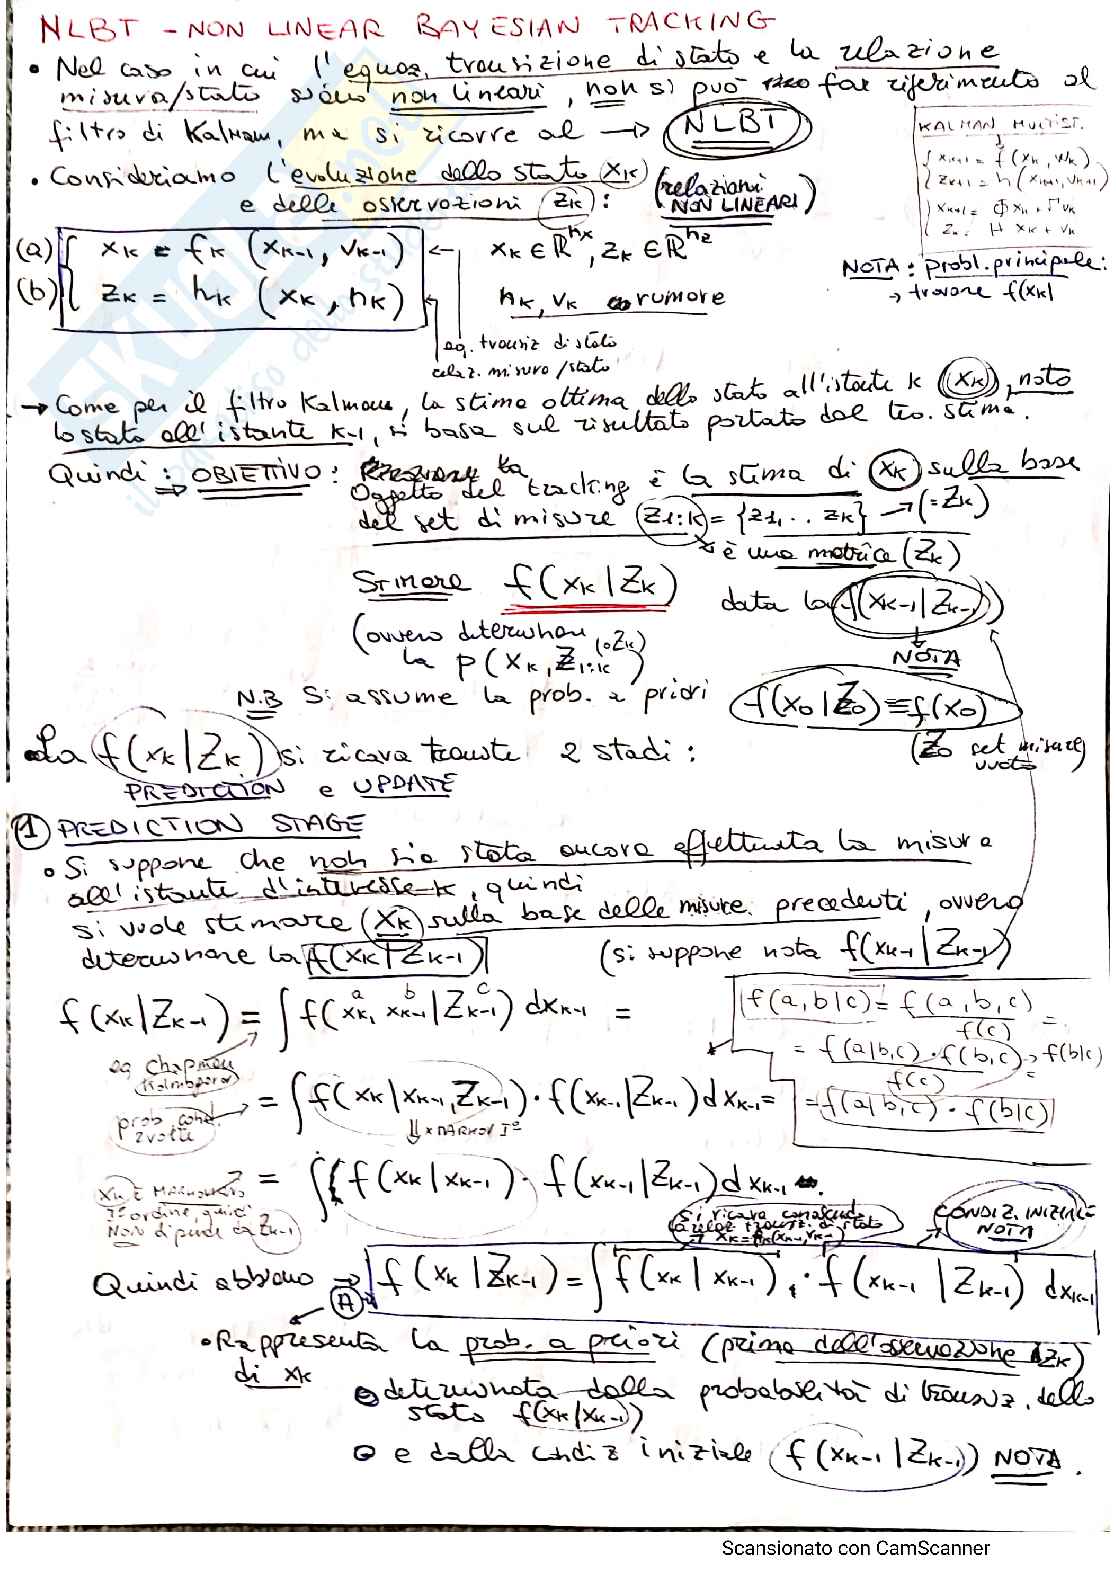 NLBT - NON LINEAR BAYESIAN TRACKING
• Nel caso in cui l'equaz. transizione di stato e la relazione
misura/stato siano non lineari, non si può far riferimento al
filtro di Kalman, ma si ricorre al → NLBT
KALMAN MULTIST.
x_{k+1} = f(x_k, w_k)
z_{k+1} = h(x_{k+1}, v_{k+1})
x_{k+1} = Φ x_k + Γ v_k
H x_k + v_k
• Consideriamo l'evoluzione dello stato (x_k)
e delle osservazioni (z_k):
(relazioni
NON LINEARI)
(a) x_k = f_k (x_{k-1}, v_{k-1}) ← x_k ∈ ℝ^{n_x}, z_k ∈ ℝ^{n_z}
(b) z_k = h_k (x_k, n_k)
n_k, v_k rumore
NOTA: probl. principale:
→ trovare f(x_k|
eq. transiz di stato
relaz. misura/stato
→ Come per il filtro Kalman, la stima ottima dello stato all'istante k (x_k), noto
lo stato all'istante k-1, si basa sul risultato portato dal teo. stima.
Quindi: ⇒ OBIETTIVO:
Oggetto del tracking è la stima di x_k sulla base
del set di misure z_{1:k} = {z1, .. z_k} → (= Z_k)
è una matrice (Z_k)
Stimare f(x_k|Z_k) data la f(x_{k-1}|Z_{k-1})
NOTA
(ovvero determinare
la p(x_k, Z_{1:k}) (o Z_k)
N.B Si assume la prob. a priori f(x_0|Z_0) ≡ f(x_0)
(Z_0 set misure
vuoto
• La f(x_k|Z_k) si ricava tramite 2 stadi:
PREDICTION e UPDATE
① PREDICTION STAGE
• Si suppone che non sia stata ancora effettuata la misura
all'istante d'interesse k, quindi
si vuole stimare (x_k) sulla base delle misure precedenti, ovvero
determinare la f(x_k|Z_{k-1}) (si suppone nota f(x_{k-1}|Z_{k-1})
a b c
f(x_k|Z_{k-1}) = ∫ f(x_k, x_{k-1}|Z_{k-1}) dx_{k-1} =
f(a,b|c) = f(a,b,c) / f(c) =
= f(a|b,c)·f(b,c) / f(c) → f(b|c)
=
= f(a|b,c) · f(b|c)
eq Chapman
Kolmogorov
prob cond.
2 volte
= ∫ f(x_k|x_{k-1}, Z_{k-1}) · f(x_{k-1}|Z_{k-1}) dx_{k-1} =
⇓ x MARKOV I°
x_k È MARKOVIANO
1° ordine, quindi
NON dipende da Z_{k-1}
= ∫ f(x_k|x_{k-1}) · f(x_{k-1}|Z_{k-1}) dx_{k-1}.
Si ricava conoscendo
la relaz transiz. di stato
→ x_k = f_k(x_{k-1}, v_{k-1})
CONDIZ. INIZIALE
NOTA
Quindi abbiamo ⇒ f(x_k|Z_{k-1}) = ∫ f(x_k|x_{k-1}) · f(x_{k-1}|Z_{k-1}) dx_{k-1}
(A)
• Rappresenta la prob. a priori (prima dell'osservazione z_k)
di x_k
determinata dalla probabilità di transiz. dello
stato f(x_k|x_{k-1})
e dalla condiz iniziale f(x_{k-1}|Z_{k-1}) NOTA.
Scansionato con CamScanner